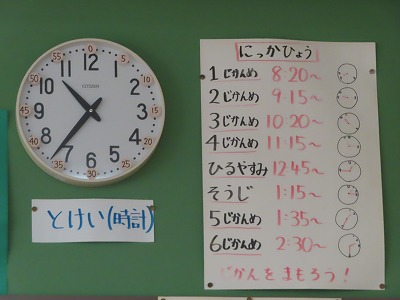 55 12 5
50 11 1 10
10 CITIZEN 2
45 9 3 15
8 4
40 7 6 5 20
35 30 25
とけい(時計)
にっかひょう
1じかんめ 8:20～
2じかんめ 9:15～
3じかんめ 10:20～
4じかんめ 11:15～
ひるやすみ 12:45～
そうじ 1:15～
5じかんめ 1:35～
6じかんめ 2:30～
じかんをまもろう!